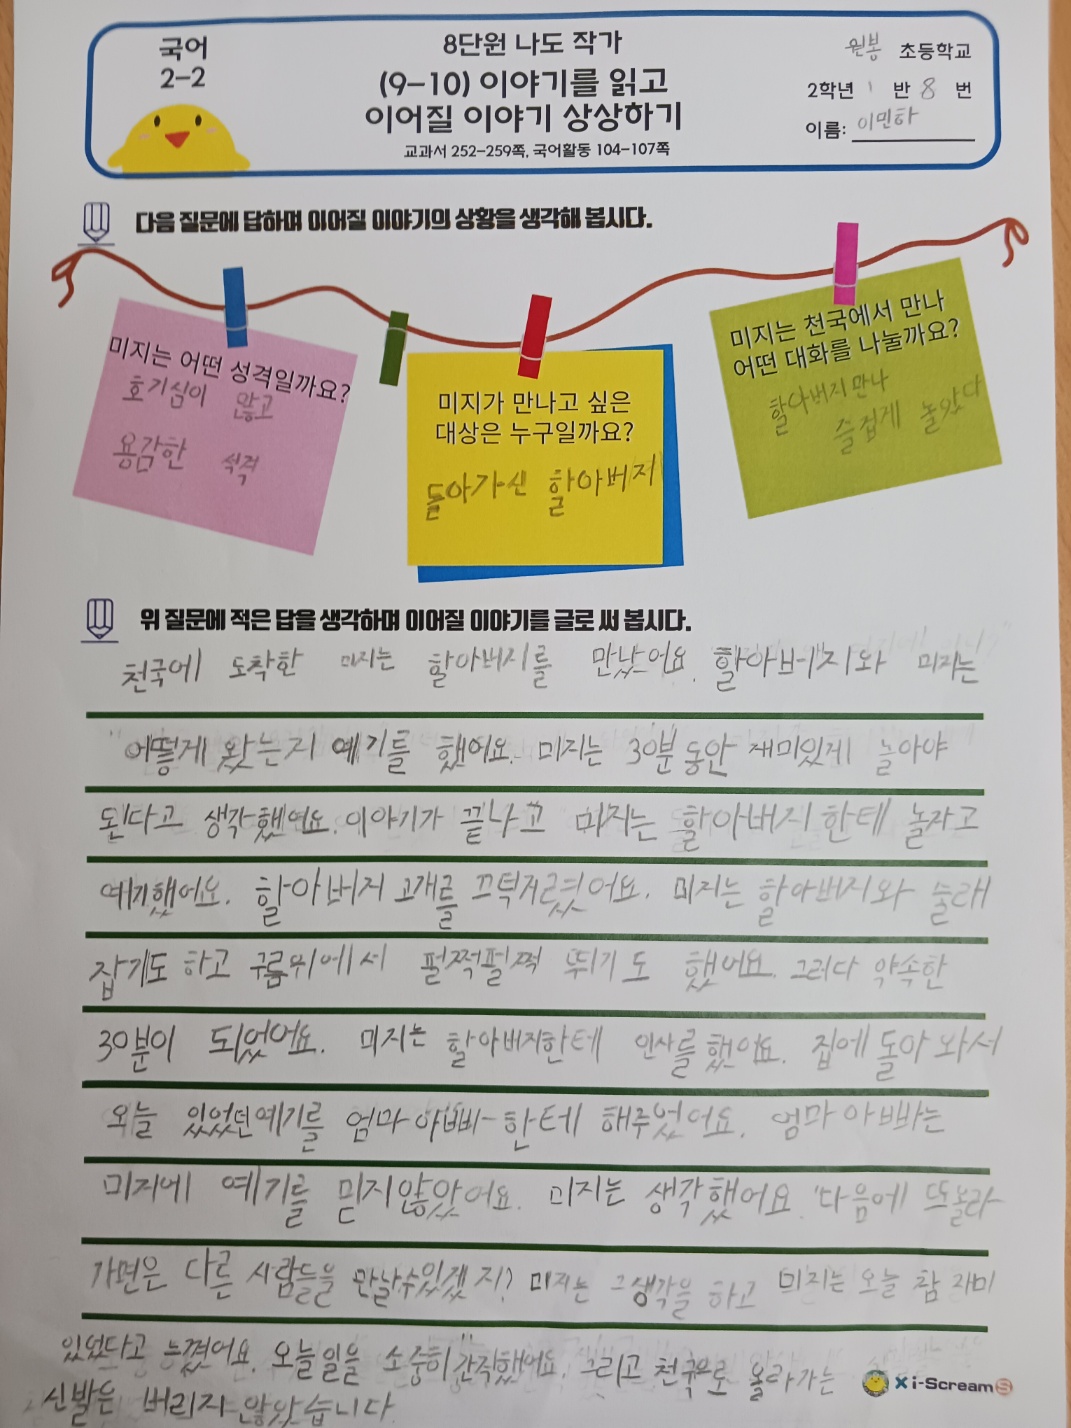 국어
2-2
8단원 나도 작가
(9-10) 이야기를 읽고
이어질 이야기 상상하기
교과서 252-259쪽, 국어활동 104-107쪽
원봉 초등학교
2학년 1 반 8 번
이름: 이민하
다음 질문에 답하며 이어질 이야기의 상황을 생각해 봅시다.
미지는 어떤 성격일까요?
호기심이 많고
용감한 성격
미지가 만나고 싶은
대상은 누구일까요?
돌아가신 할아버지
미지는 천국에서 만나
어떤 대화를 나눌까요?
할아버지 만나
즐겁게 놀았다
위 질문에 적은 답을 생각하며 이어질 이야기를 글로 써 봅시다.
천국에 도착한 미지는 할아버지를 만났어요. 할아버지와 미지는
어떻게 왔는지 예기를 했어요. 미지는 30분동안 재미있게 놀아야
된다고 생각했어요. 이야기가 끝나고 미지는 할아버지한테 놀자고
예기했어요. 할아버지 고개를 끄턱거렸어요. 미지는 할아버지와 술래
잡기도 하고 구름위에서 펄쩍펄쩍 뛰기도 했어요. 그러다 약속한
30분이 되었어요. 미지는 할아버지한테 인사를 했어요. 집에 돌아 와서
오늘 있었던예기를 엄마 아빠한테 해주었어요. 엄마 아빠는
미지에 예기를 믿지않았어요. 미지는 생각했어요 '다음에 또올라
가면은 다른 사람들을 만날수있겠지? 미지는 그생각을 하고 미지는 오늘 참 재미
있었다고 느꼈어요. 오늘일을 소중히 간직했어요. 그리고 천국으로 올라가는
신발은 버리지 않았습니다.
i-Scream S